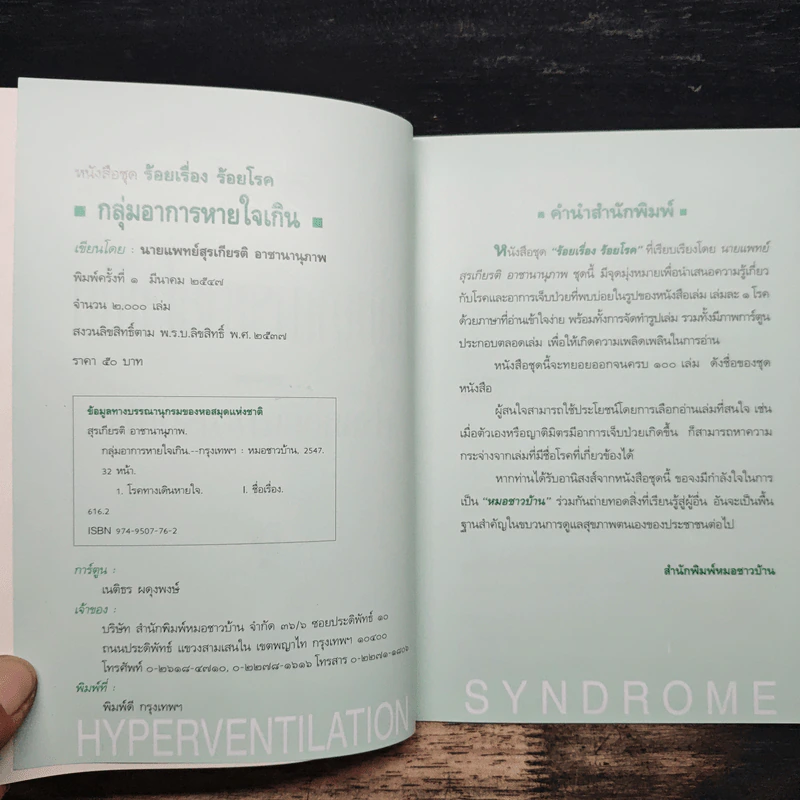 หนังสือชุด ร้อยเรื่อง ร้อยโรค
กลุ่มอาการหายใจเกิน
เขียนโดย : นายแพทย์สุรเกียรติ อาชานานุภาพ
พิมพ์ครั้งที่ ๑ มีนาคม ๒๕๔๗
จำนวน ๒,๐๐๐ เล่ม
สงวนลิขสิทธิ์ตาม พ.ร.บ.ลิขสิทธิ์ พ.ศ.๒๕๓๗
ราคา ๕๐ บาท
ข้อมูลทางบรรณานุกรมของหอสมุดแห่งชาติ
สุรเกียรติ อาชานานุภาพ.
กลุ่มอาการหายใจเกิน.--กรุงเทพฯ : หมอชาวบ้าน, 2547.
32 หน้า.
1. โรคทางเดินหายใจ. I. ชื่อเรื่อง.
616.2
ISBN 974-9507-76-2
การ์ตูน :
เนติธร ผดุงพงษ์
เจ้าของ :
บริษัท สำนักพิมพ์หมอชาวบ้าน จำกัด ๓๖/๖ ซอยประดิพัทธ์ ๑๐
ถนนประดิพัทธ์ แขวงสามเสนใน เขตพญาไท กรุงเทพฯ ๑๐๔๐๐
โทรศัพท์ ๐-๒๖๑๘-๔๗๑๐, ๐-๒๒๗๘-๑๖๑๖ โทรสาร ๐-๒๒๗๑-๑๘๐๖
พิมพ์ที่ :
พิมพ์ดี กรุงเทพฯ
HYPERVENTILATION
คำนำสำนักพิมพ์
หนังสือชุด “ร้อยเรื่อง ร้อยโรค” ที่เรียบเรียงโดย นายแพทย์
สุรเกียรติ อาชานานุภาพ ชุดนี้ มีจุดมุ่งหมายเพื่อนำเสนอความรู้เกี่ยว
กับโรคและอาการเจ็บป่วยที่พบบ่อยในรูปของหนังสือเล่ม เล่มละ ๑ โรค
ด้วยภาษาที่อ่านเข้าใจง่าย พร้อมทั้งการจัดทำรูปเล่ม รวมทั้งมีภาพการ์ตูน
ประกอบตลอดเล่ม เพื่อให้เกิดความเพลิดเพลินในการอ่าน
หนังสือชุดนี้จะทยอยออกจนครบ ๑๐๐ เล่ม ดังชื่อของชุด
หนังสือ
ผู้สนใจสามารถใช้ประโยชน์โดยการเลือกอ่านเล่มที่สนใจ เช่น
เมื่อตัวเองหรือญาติมิตรมีอาการเจ็บป่วยเกิดขึ้น ก็สามารถหาความ
กระจ่างจากเล่มที่มีชื่อโรคที่เกี่ยวข้องได้
หากท่านได้รับอานิสงส์จากหนังสือชุดนี้ ขอจงมีกำลังใจในการ
เป็น “หมอชาวบ้าน” ร่วมกันถ่ายทอดสิ่งที่เรียนรู้สู่ผู้อื่น อันจะเป็นพื้น
ฐานสำคัญในขบวนการดูแลสุขภาพตนเองของประชาชนต่อไป
สำนักพิมพ์หมอชาวบ้าน
SYNDROME